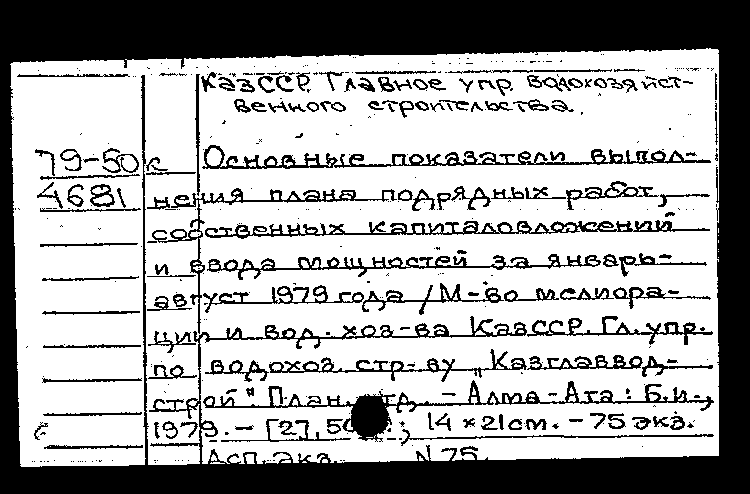 КазССР. Главное упр. водохозяйст-
венного строительства.
79-50 к Основные показатели выпол-
4681 нения плана подрядных работ,
собственных капиталовложений
и ввода мощностей за январь-
август 1979 года / М-во мелиора-
ции и вод. хоз-ва КазССР. Гл. упр.
по водохоз. стр-ву „Казглаввод-
строй". План. отд. - Алма-Ата: Б.и.,
1979. - 14 × 21 cm. - 75 экз.
Асп. экз. N 75.